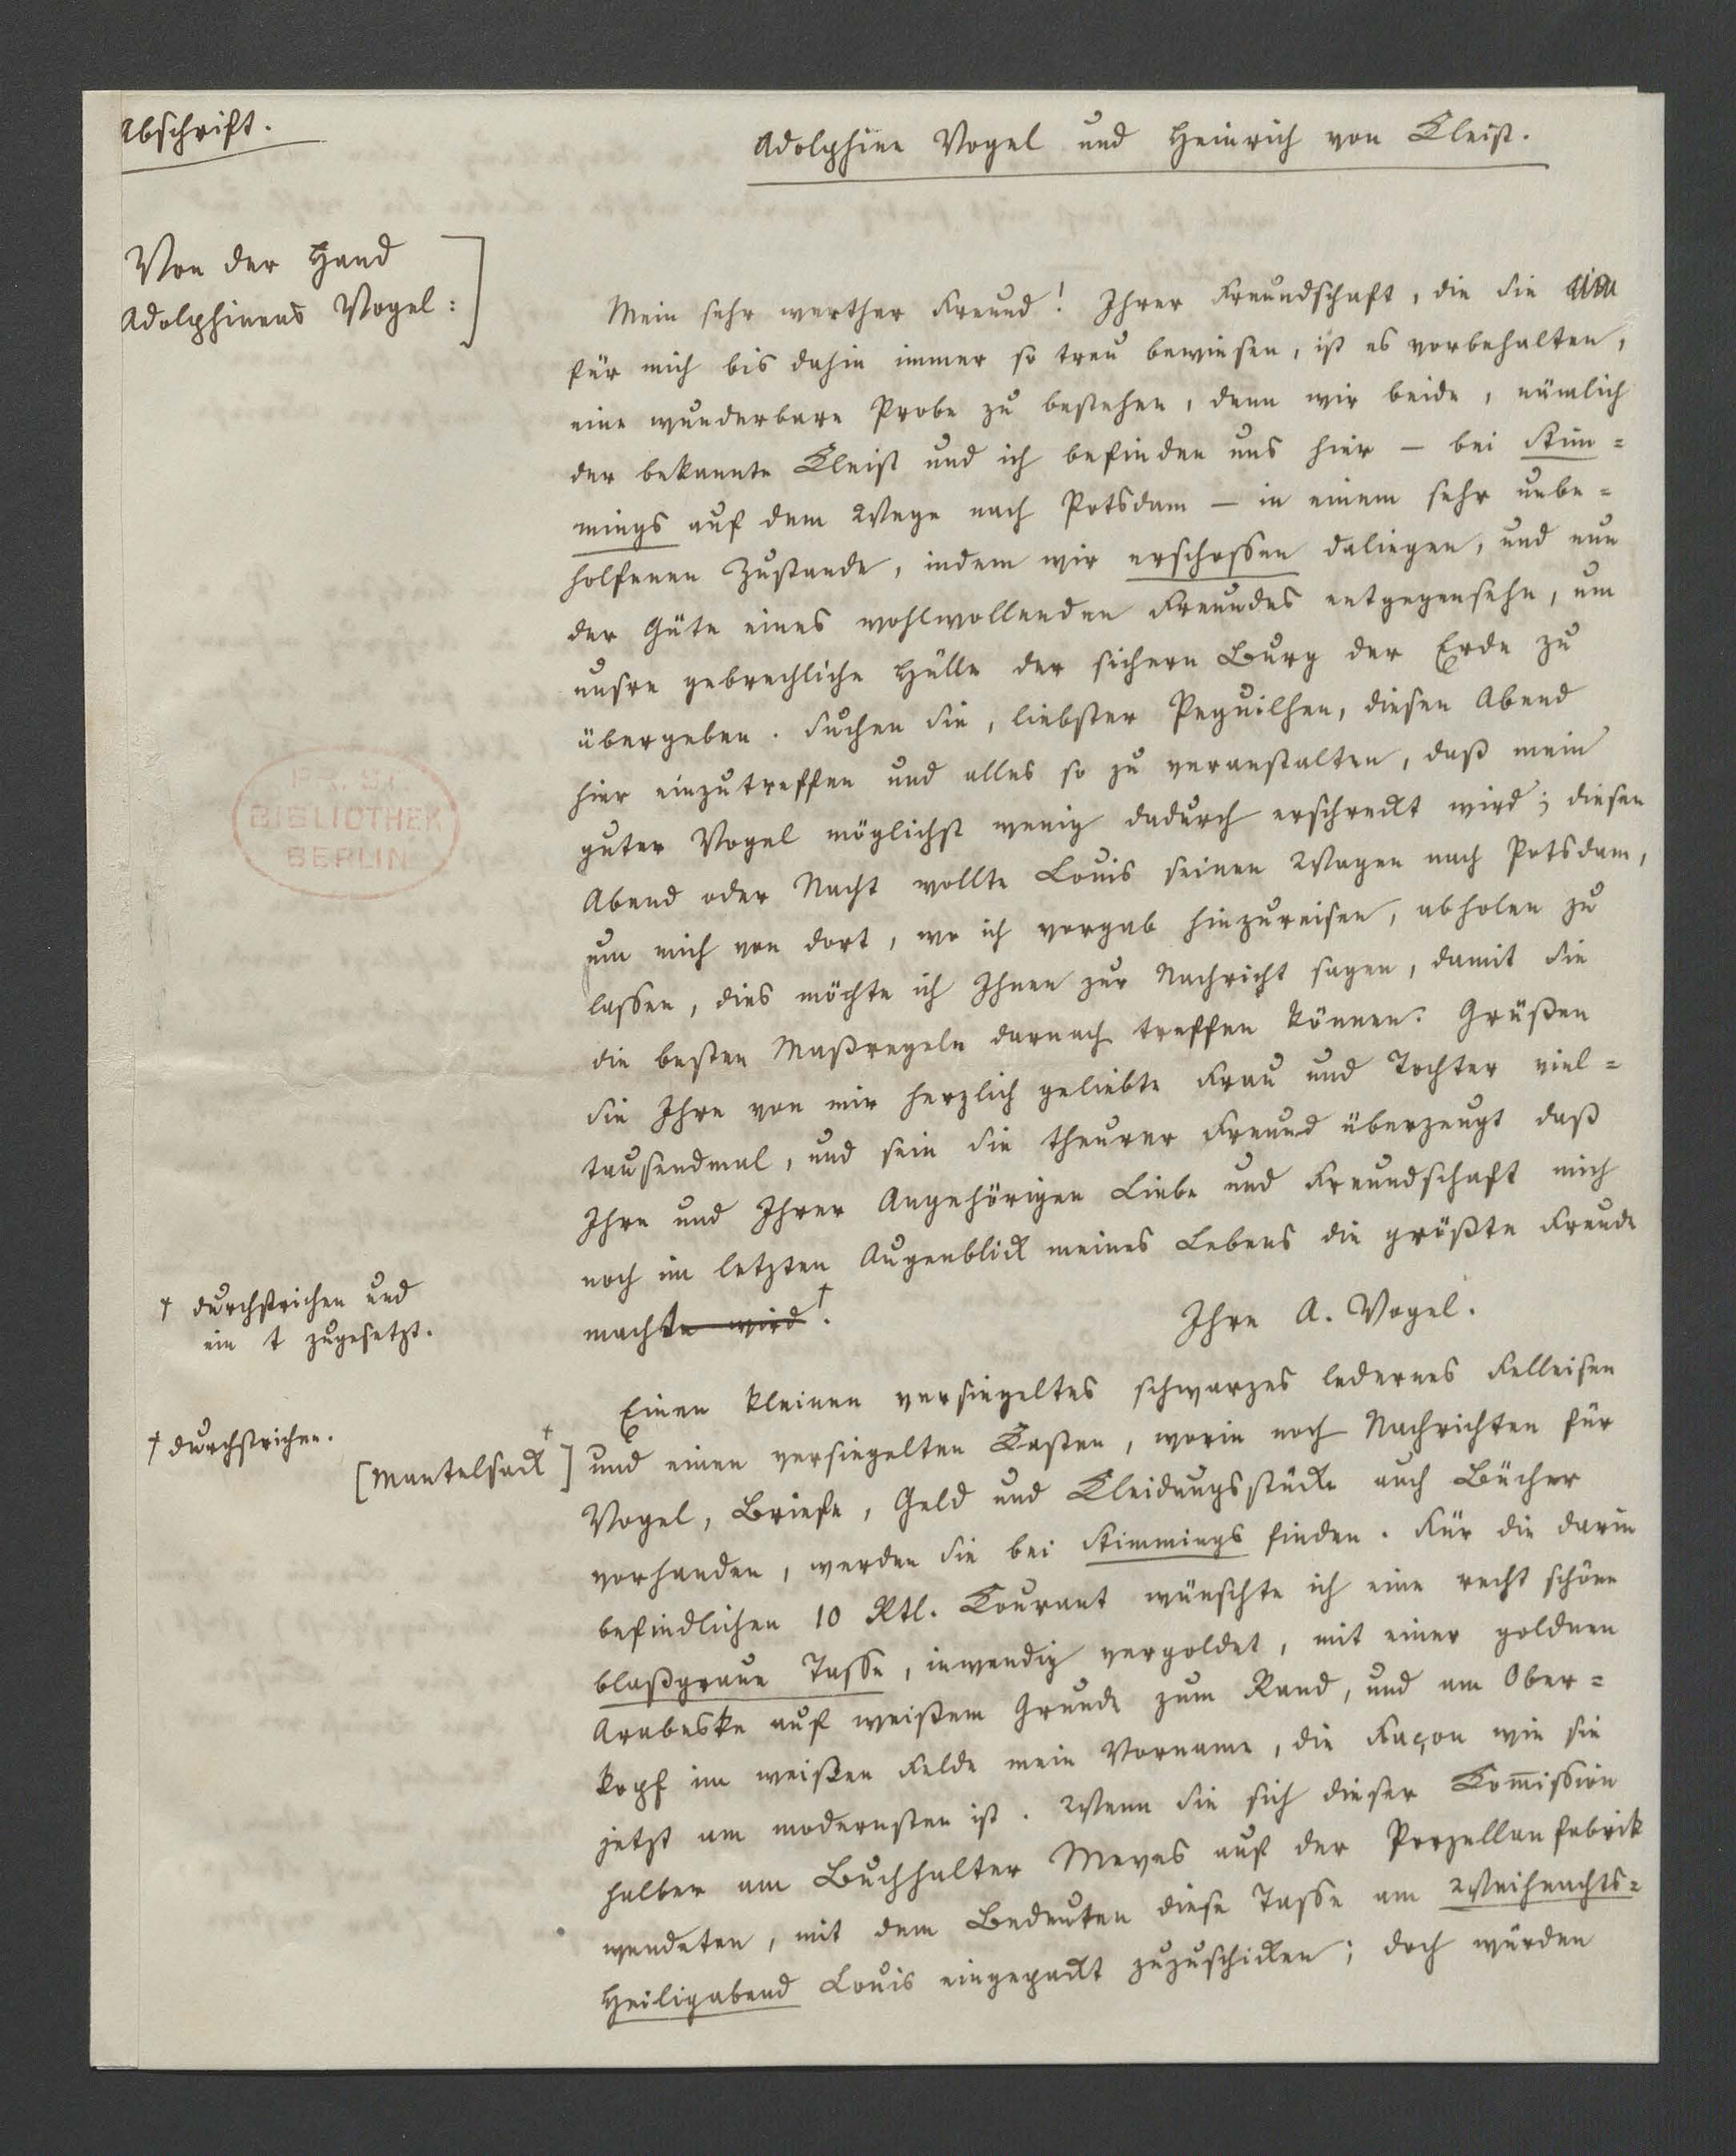 Abschrift.
Adolphine Vogel und Heinrich von Kleist.
Von der Hand
Adolphinens Vogel:]
Mein sehr werther Freund! Ihrer Freundschaft, die Sie
für mich bis dahin immer so treu bewiesen, ist es vorbehalten,
eine wunderbare Probe zu bestehen, denn wir beide, nämlich
der bekannte Kleist und ich befinden uns hier – bei Stim=
mings auf dem Wege nach Potsdam – in einem sehr unbe=
holfenen Zustande, indem wir erschossen daliegen, und nun
der Güte eines wohlwollenden Freundes entgegensehn, um
unsre gebrechliche Hülle der sichern Burg der Erde zu
übergeben. Suchen Sie, liebster Peguilhen, diesen Abend
hier einzutreffen und alles so zu veranstalten, daß mein
guter Vogel möglichst wenig dadurch erschreckt wird; diesen
Abend oder Nacht wollte Louis seinen Wagen nach Potsdam,
um mich von dort, wo ich vorgab hinzureisen, abholen zu
lassen, dies möchte ich Ihnen zur Nachricht sagen, damit Sie
die besten Maßregeln darnach treffen können. Grüßen
Sie Ihre von mir herzlich geliebte Frau und Tochter viel=
tausendmal, und sein Sie theurer Freund überzeugt daß
Ihre und Ihrer Angehörigen Liebe und Freundschaft mich
noch im letzten Augenblick meines Lebens die größte Freude
machte wird†.
† durchstrichen und
ein t zugesetzt.
Ihre A. Vogel.
Einen kleinen versiegeltes schwarzes ledernes Felleisen
† durchstrichen.
[Mantelsack†] und einen versiegelten Kasten, worin noch Nachrichten für
Vogel, Briefe, Geld und Kleidungsstücke auch Bücher
vorhanden, werden Sie bei Stimmings finden. Für die darin
befindlichen 10 Rtl. Courant wünschte ich eine recht schöne
blaßgraue Tasse, inwendig vergoldet, mit einer goldnen
Arabeske auf weißem Grunde zum Rand, und am Ober=
kopf im weißen Felde mein Vorname, die Façon wie sie
jetzt am modernsten ist. Wenn Sie sich dieser Com̅ission
halber am Buchhalter Meves auf der Porzellanfabrik
wendeten, mit dem Bedeuten diese Tasse am Weihnachts=
Heiligabend Louis eingepackt zuzuschicken; doch würden
PR. ST.
BIBLIOTHEK
BERLIN